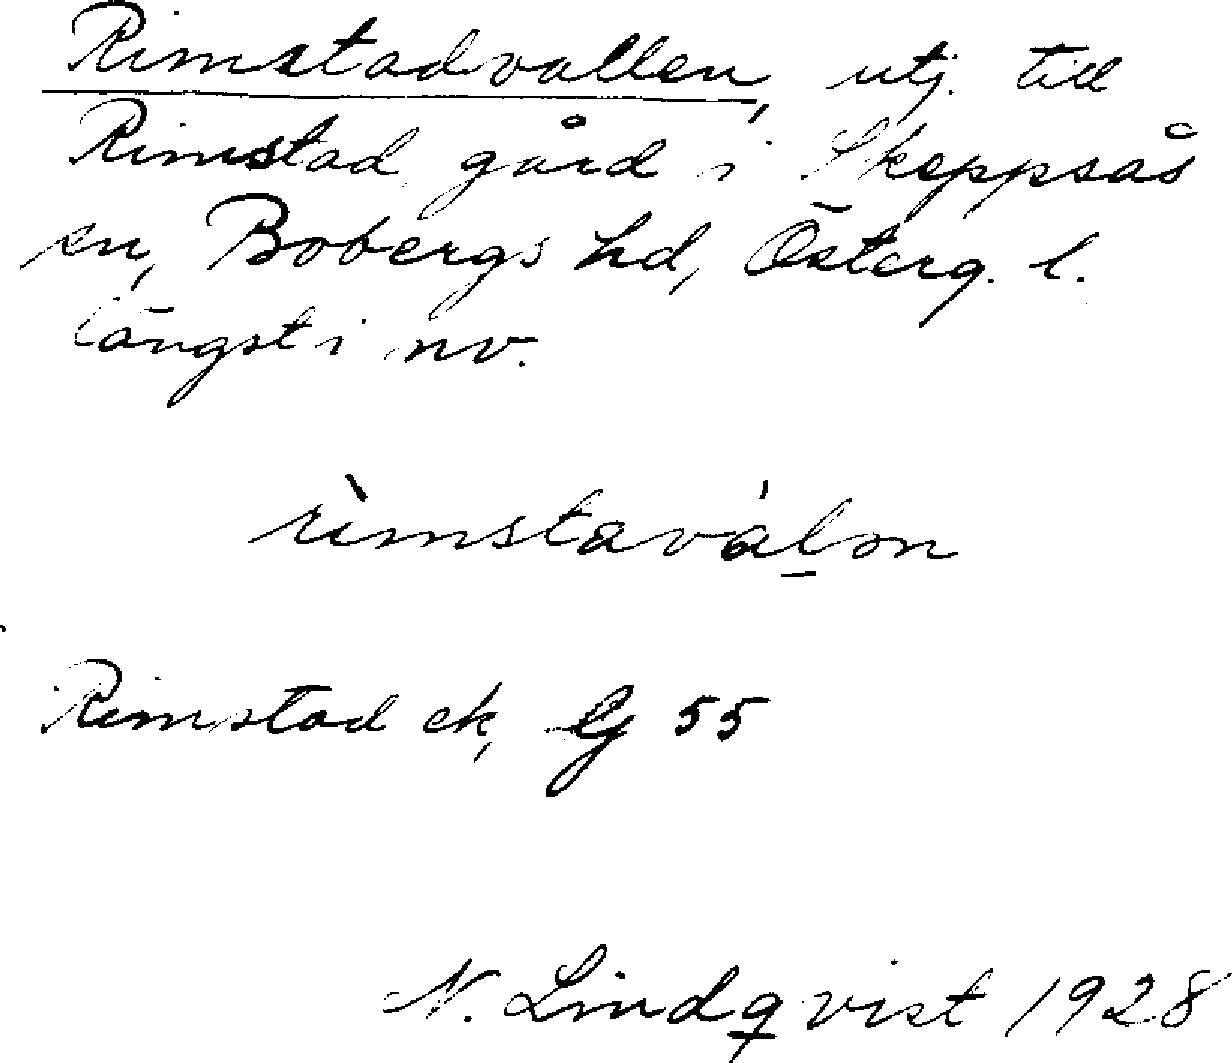 Rimstadvallen, utj. till
Rimstad gård i Skeppsås
sn, Bobergs hd, Österg. l.
längst i nv.
rìmstavál̠ən
Rimstad ek, bj 55
N. Lindqvist 1928